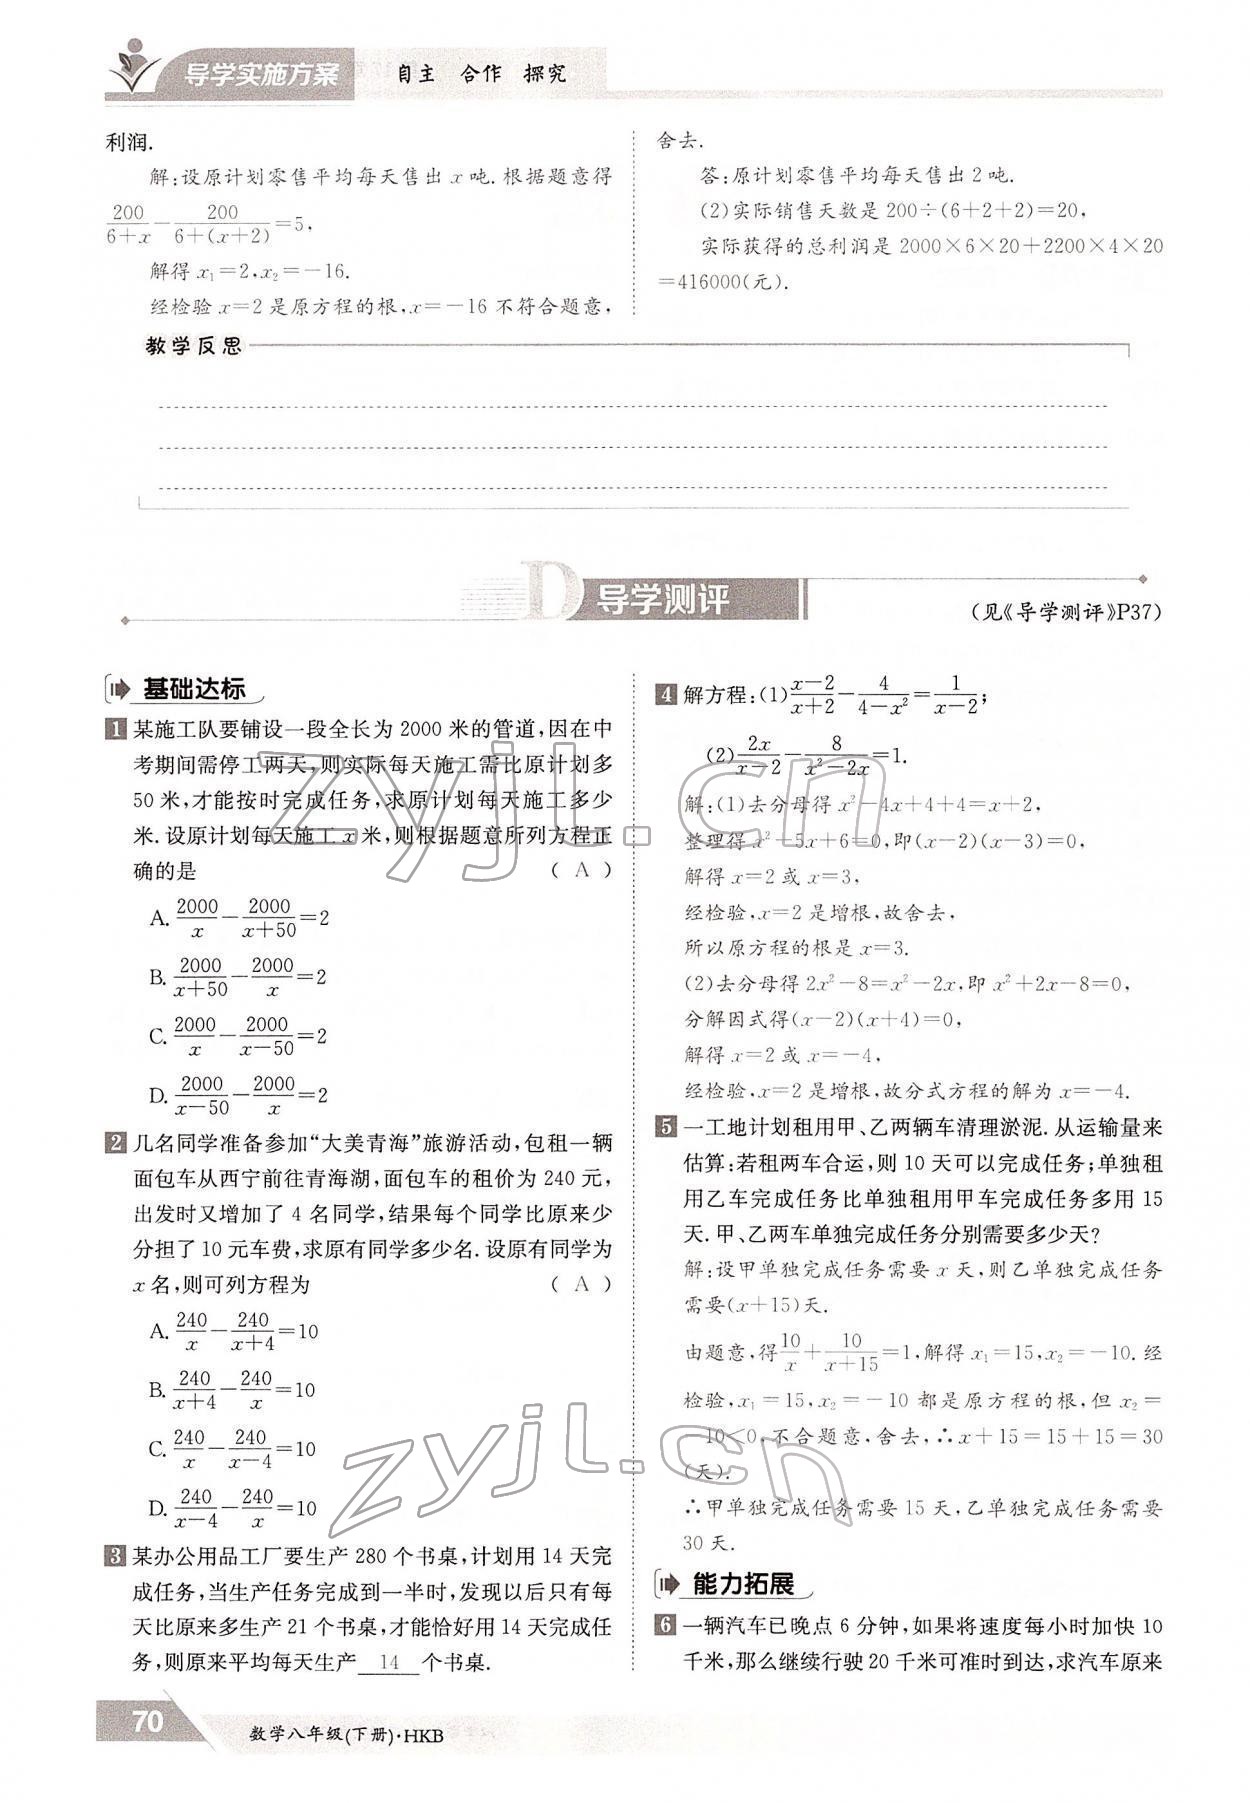 导学实施方案 自主 合作 探究
利润.
解:设原计划零售平均每天售出 x 吨.根据题意得
200/(6+x)-200/(6+(x+2))=5,
解得 x₁=2,x₂=-16.
经检验 x=2 是原方程的根,x=-16 不符合题意,
舍去.
答:原计划零售平均每天售出 2 吨.
(2)实际销售天数是 200÷(6+2+2)=20,
实际获得的总利润是 2000×6×20+2200×4×20
=416000(元).
教学反思
D 导学测评
(见《导学测评》P37)
基础达标
1 某施工队要铺设一段全长为 2000 米的管道,因在中
考期间需停工两天,则实际每天施工需比原计划多
50 米,才能按时完成任务,求原计划每天施工多少
米.设原计划每天施工 x 米,则根据题意所列方程正
确的是 ( A )
A. 2000/x-2000/(x+50)=2
B. 2000/(x+50)-2000/x=2
C. 2000/x-2000/(x-50)=2
D. 2000/(x-50)-2000/x=2
2 几名同学准备参加“大美青海”旅游活动,包租一辆
面包车从西宁前往青海湖,面包车的租价为 240 元,
出发时又增加了 4 名同学,结果每个同学比原来少
分担了 10 元车费,求原有同学多少名.设原有同学为
x 名,则可列方程为 ( A )
A. 240/x-240/(x+4)=10
B. 240/(x+4)-240/x=10
C. 240/x-240/(x-4)=10
D. 240/(x-4)-240/x=10
3 某办公用品工厂要生产 280 个书桌,计划用 14 天完
成任务,当生产任务完成到一半时,发现以后只有每
天比原来多生产 21 个书桌,才能恰好用 14 天完成任
务,则原来平均每天生产 14 个书桌.
4 解方程:(1)(x-2)/(x+2)-4/(4-x²)=1/(x-2);
(2)2x/(x-2)-8/(x²-2x)=1.
解:(1)去分母得 x²-4x+4+4=x+2,
整理得 x²-5x+6=0,即(x-2)(x-3)=0,
解得 x=2 或 x=3,
经检验,x=2 是增根,故舍去,
所以原方程的根是 x=3.
(2)去分母得 2x²-8=x²-2x,即 x²+2x-8=0,
分解因式得(x-2)(x+4)=0,
解得 x=2 或 x=-4,
经检验,x=2 是增根,故分式方程的解为 x=-4.
5 一工地计划租用甲、乙两辆车清理淤泥.从运输量来
估算:若租两车合运,则 10 天可以完成任务;单独租
用乙车完成任务比单独租用甲车完成任务多用 15
天.甲、乙两车单独完成任务分别需要多少天?
解:设甲单独完成任务需要 x 天,则乙单独完成任务
需要(x+15)天.
由题意,得10/x+10/(x+15)=1,解得 x₁=15,x₂=-10.经
检验,x₁=15,x₂=-10 都是原方程的根,但 x₂=
-10<0,不合题意,舍去,∴x+15=15+15=30
(天).
∴甲单独完成任务需要 15 天,乙单独完成任务需要
30 天.
能力拓展
6 一辆汽车已晚点 6 分钟,如果将速度每小时加快 10
千米,那么继续行驶 20 千米可准时到达,求汽车原来
70 数学八年级(下册)·HKB
zyjl.cn
zyjl.cn